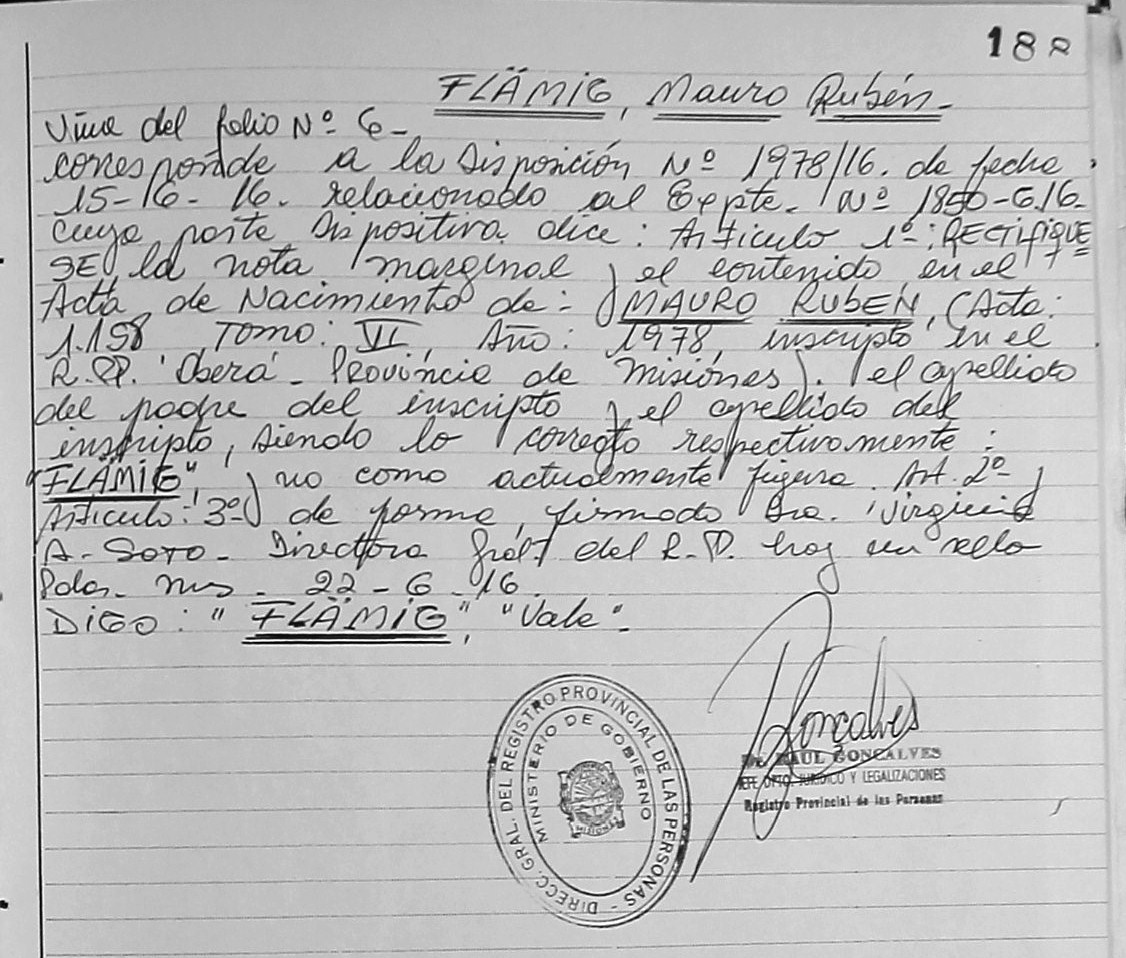 188
FLÄMIG, Mauro Rubén.-
Viene del folio Nº 6-
corresponde a la Disposición Nº 1978/16. de fecha
15-16-16. relacionado al Expte. Nº 1850-G.16-
cuya parte Dispositiva dice: Artículo 1º: RECTIFIQUE
SE la nota marginal y el contenido en el
Acta de Nacimiento de: MAURO RUBEN, (Acta:
1.158 Tomo: VI, Año: 1978, inscripto en el
R.P. Oberá- Provincia de Misiones). el apellido
del padre del inscripto y el apellido del
inscripto, siendo lo correcto respectivamente:
"FLÄMIG", y no como actualmente figura. Art. 2º y
Artículo: 3º de forma, firmado Dra. Virginia
A. Soto- Directora Gral. del R.P. hay un sello
Pdas. Mns. 22-6-16.
DIGO: "FLÄMIG", "Vale".
DIRECC. GRAL. DEL REGISTRO PROVINCIAL DE LAS PERSONAS -
MINISTERIO DE GOBIERNO
MISIONES
Gonçalves
RAUL GONCALVES
JEFE DPTO. JURIDICO Y LEGALIZACIONES
Registro Provincial de las Personas